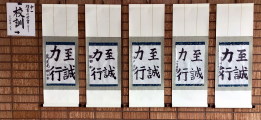 校訓
至誠
力行
至誠
力行
至誠
力行
至誠
力行
至誠
力行